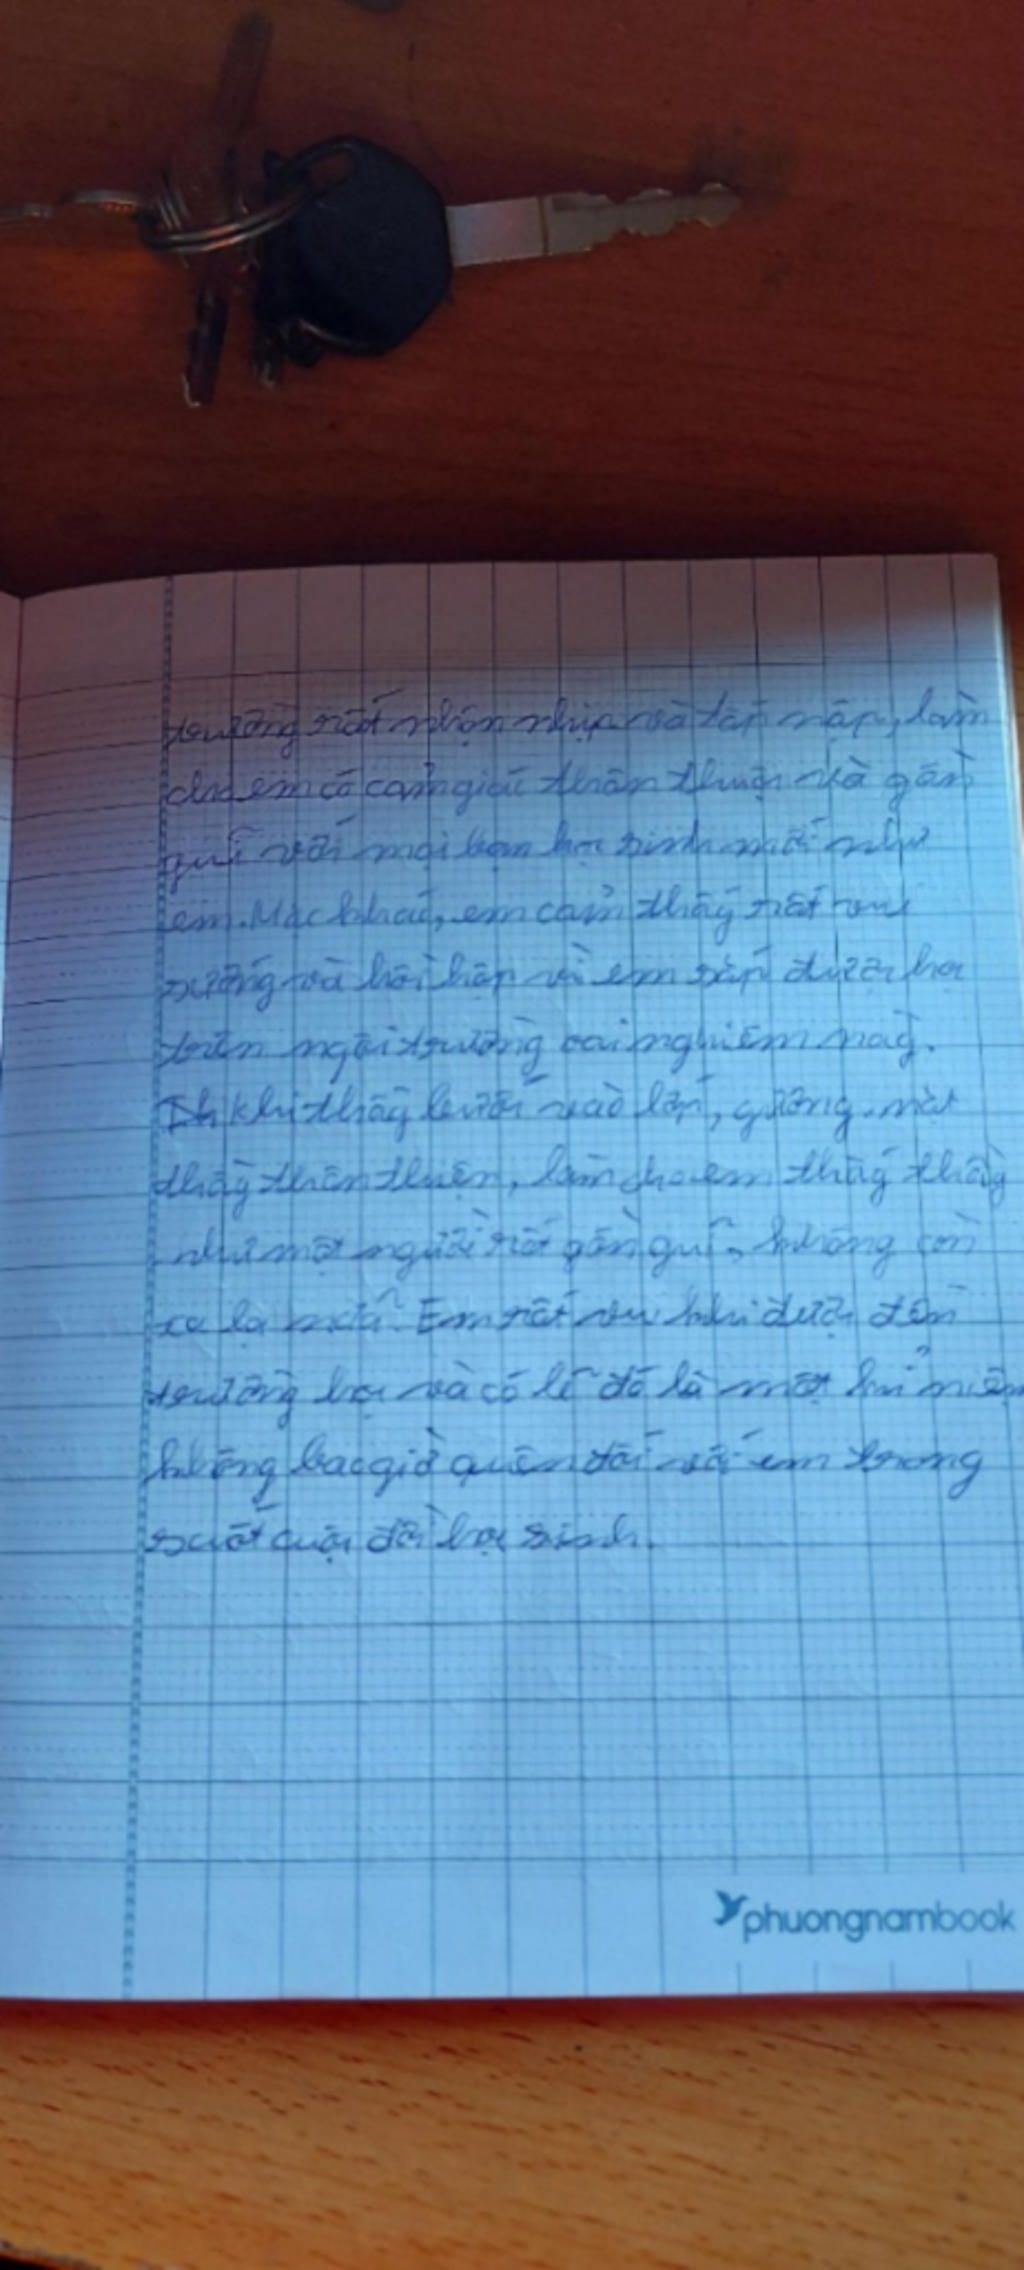 trường rất nhộn nhịp và tấp nập, làm
cho em có cảm giác thân thuộc và gần
guĩ với mọi bạn học sinh mới như
em. Mặc khác, em cảm thấy rất vui
sướng và hồi hộp vì em sắp được học
trên ngôi trường oai nghiêm này.
Khi thầy bước vào lớp, gương mặt
thầy thân thiện, làm cho em thấy thầy
như một người rất gần guĩ, không còn
xa lạ nữa. Em rất vui khi được đến
trường học và có lẽ đó là một kỉ niệm
không bao giờ quên đối với em trong
suốt cuộc đời học sinh.
phuongnambook